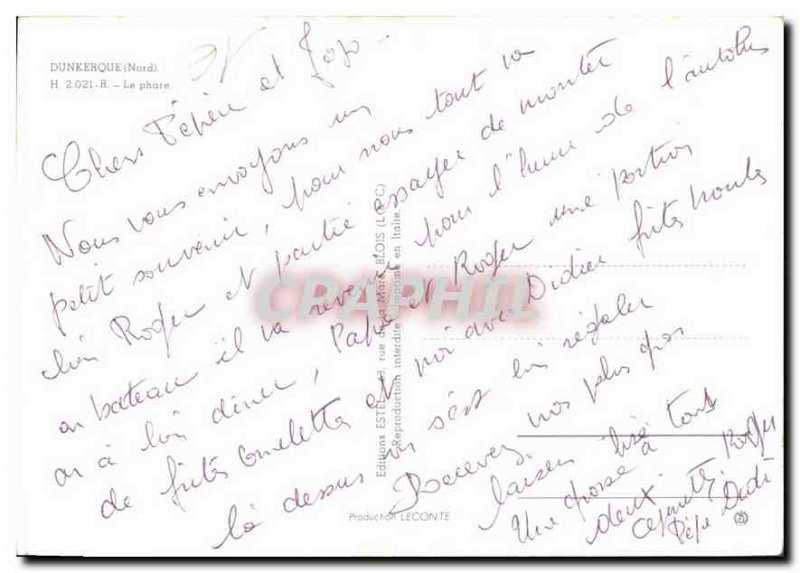 DUNKERQUE (Nord)
H. 2.021-R. - Le phare
Chers Pépère et
Nous vous envoyons un
petit souvenir, pour nous tout va
bien Roger et partie essayer de monter
en bateau il va revenir pour l'heure de l'autobus
on a bien diner, Papa et Roger une portion
de frites omelettes et moi avec Didier frites moules
là dessus on s'est bien régaler
Recevez nos plus gros
baisers à tous
Une grosse bisé à
deux. Roger
Pépé Didi
Editions ESTEL, rue de la Mare, BLOIS (L.-&-C.)
Reproduction interdite - Imprimé en Italie
Production LECONTE
CPAPHIL